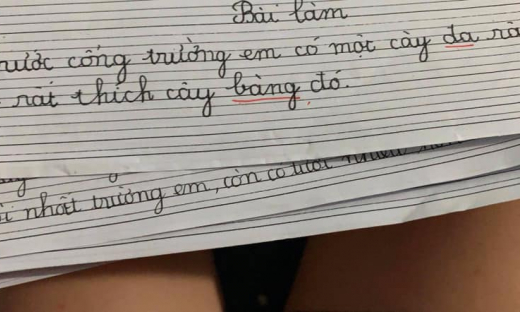 Bài làm
rước cổng trường em có một cây đa rà
rất thích cây bàng đó.
nhất trường em, còn có